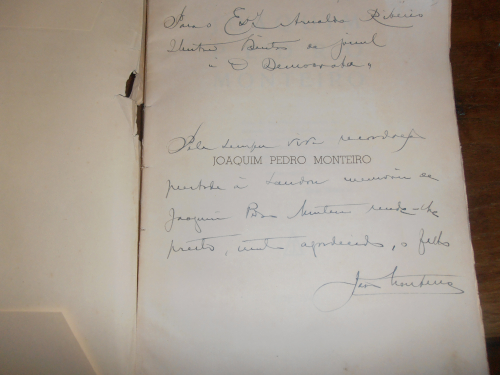 Para o Exmº Arnaldo Ribeiro
Ilustre Director do jornal
"O Democrata",
Pela sempre viva recordação
JOAQUIM PEDRO MONTEIRO
prestada à saudosa memória de
Joaquim Pedro Monteiro rende-lhe
preito, muito agradecido, o filho
Monteiro